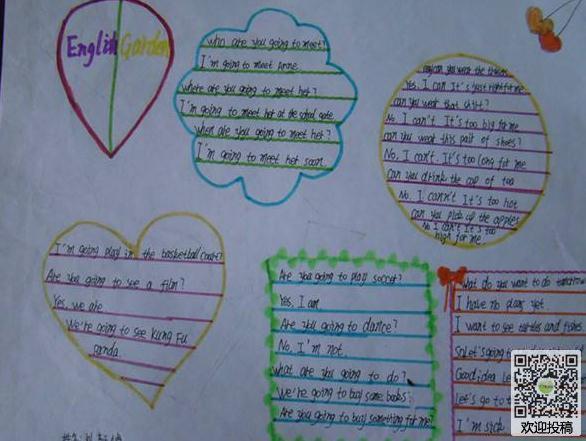 English Garden
who are you going to meet?
I'm going to meet Anne.
where are you going to meet her?
I'm going to meet her at the school gate.
when are you going to meet her?
I'm going to meet her soon.
can you wear the
Yes, I can It's just right for me
can you wear that shirt?
No I can't. It's too big for me
can you wear this pair of shoes?
No, I can't. It's too long for me
Can you drink the cup of tea
No. I cann't It's too hot
can you pick up the apples
No I can't It's too
high for me
I'm going play in the basketball court?
Are you going to see a film?
Yes, we are
We're going to see Kung Fu
ganda.
Are you going to play soccer?
Yes, I am
Are you going to dance?
No, I'm not.
what are you going to do?
We're going to buy some books.
Are you going to buy something for me?
What do you want to do tomorrow
I have no plans yet.
I want to see turtles and fishes.
So Let's going to
Good idea Le
Let's go to t
I'm sick
欢迎投稿